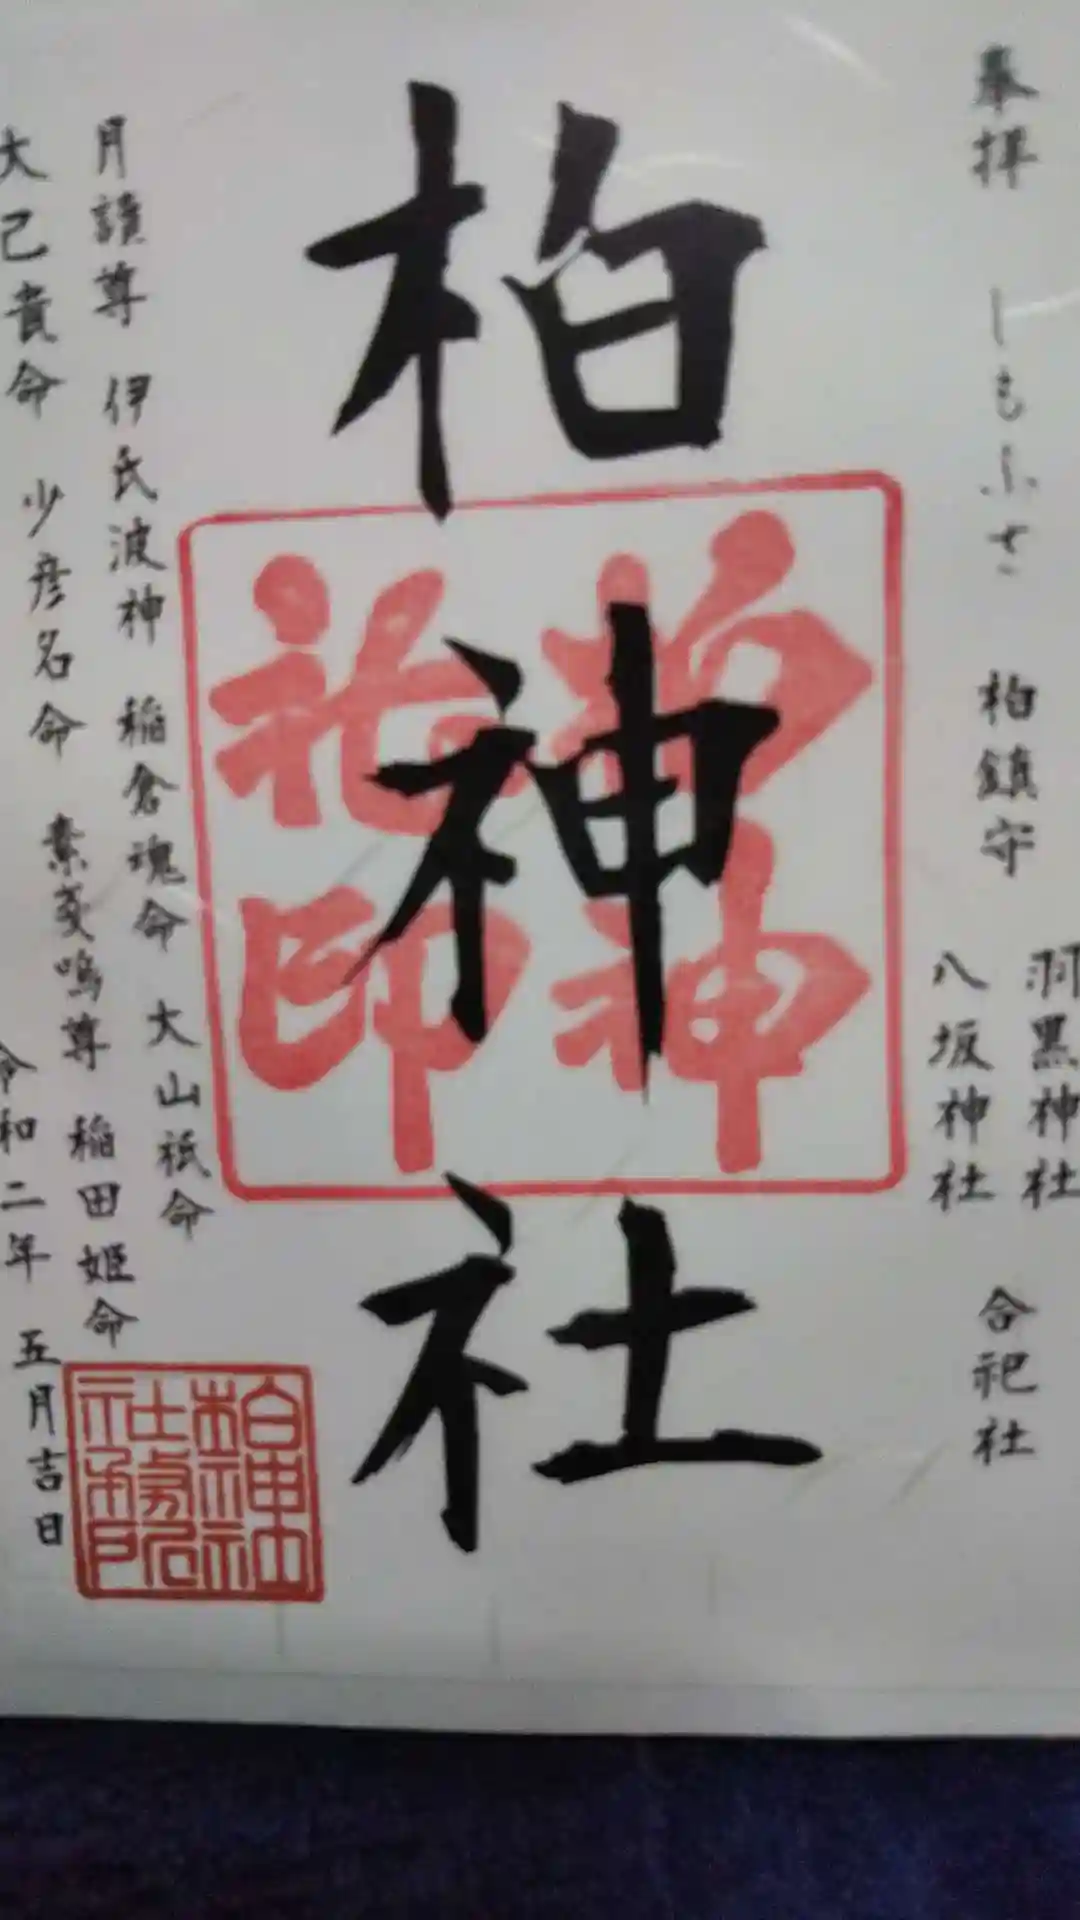 奉拝 しもふさ 柏鎮守
羽黒神社
八坂神社
合祀社
柏神社
柏神社印
月讀尊 伊氏波神 稲倉魂命 大山祇命
大己貴命 少彦名命 素戔嗚尊 稲田姫命
令和二年 五月吉日
柏神社社務所